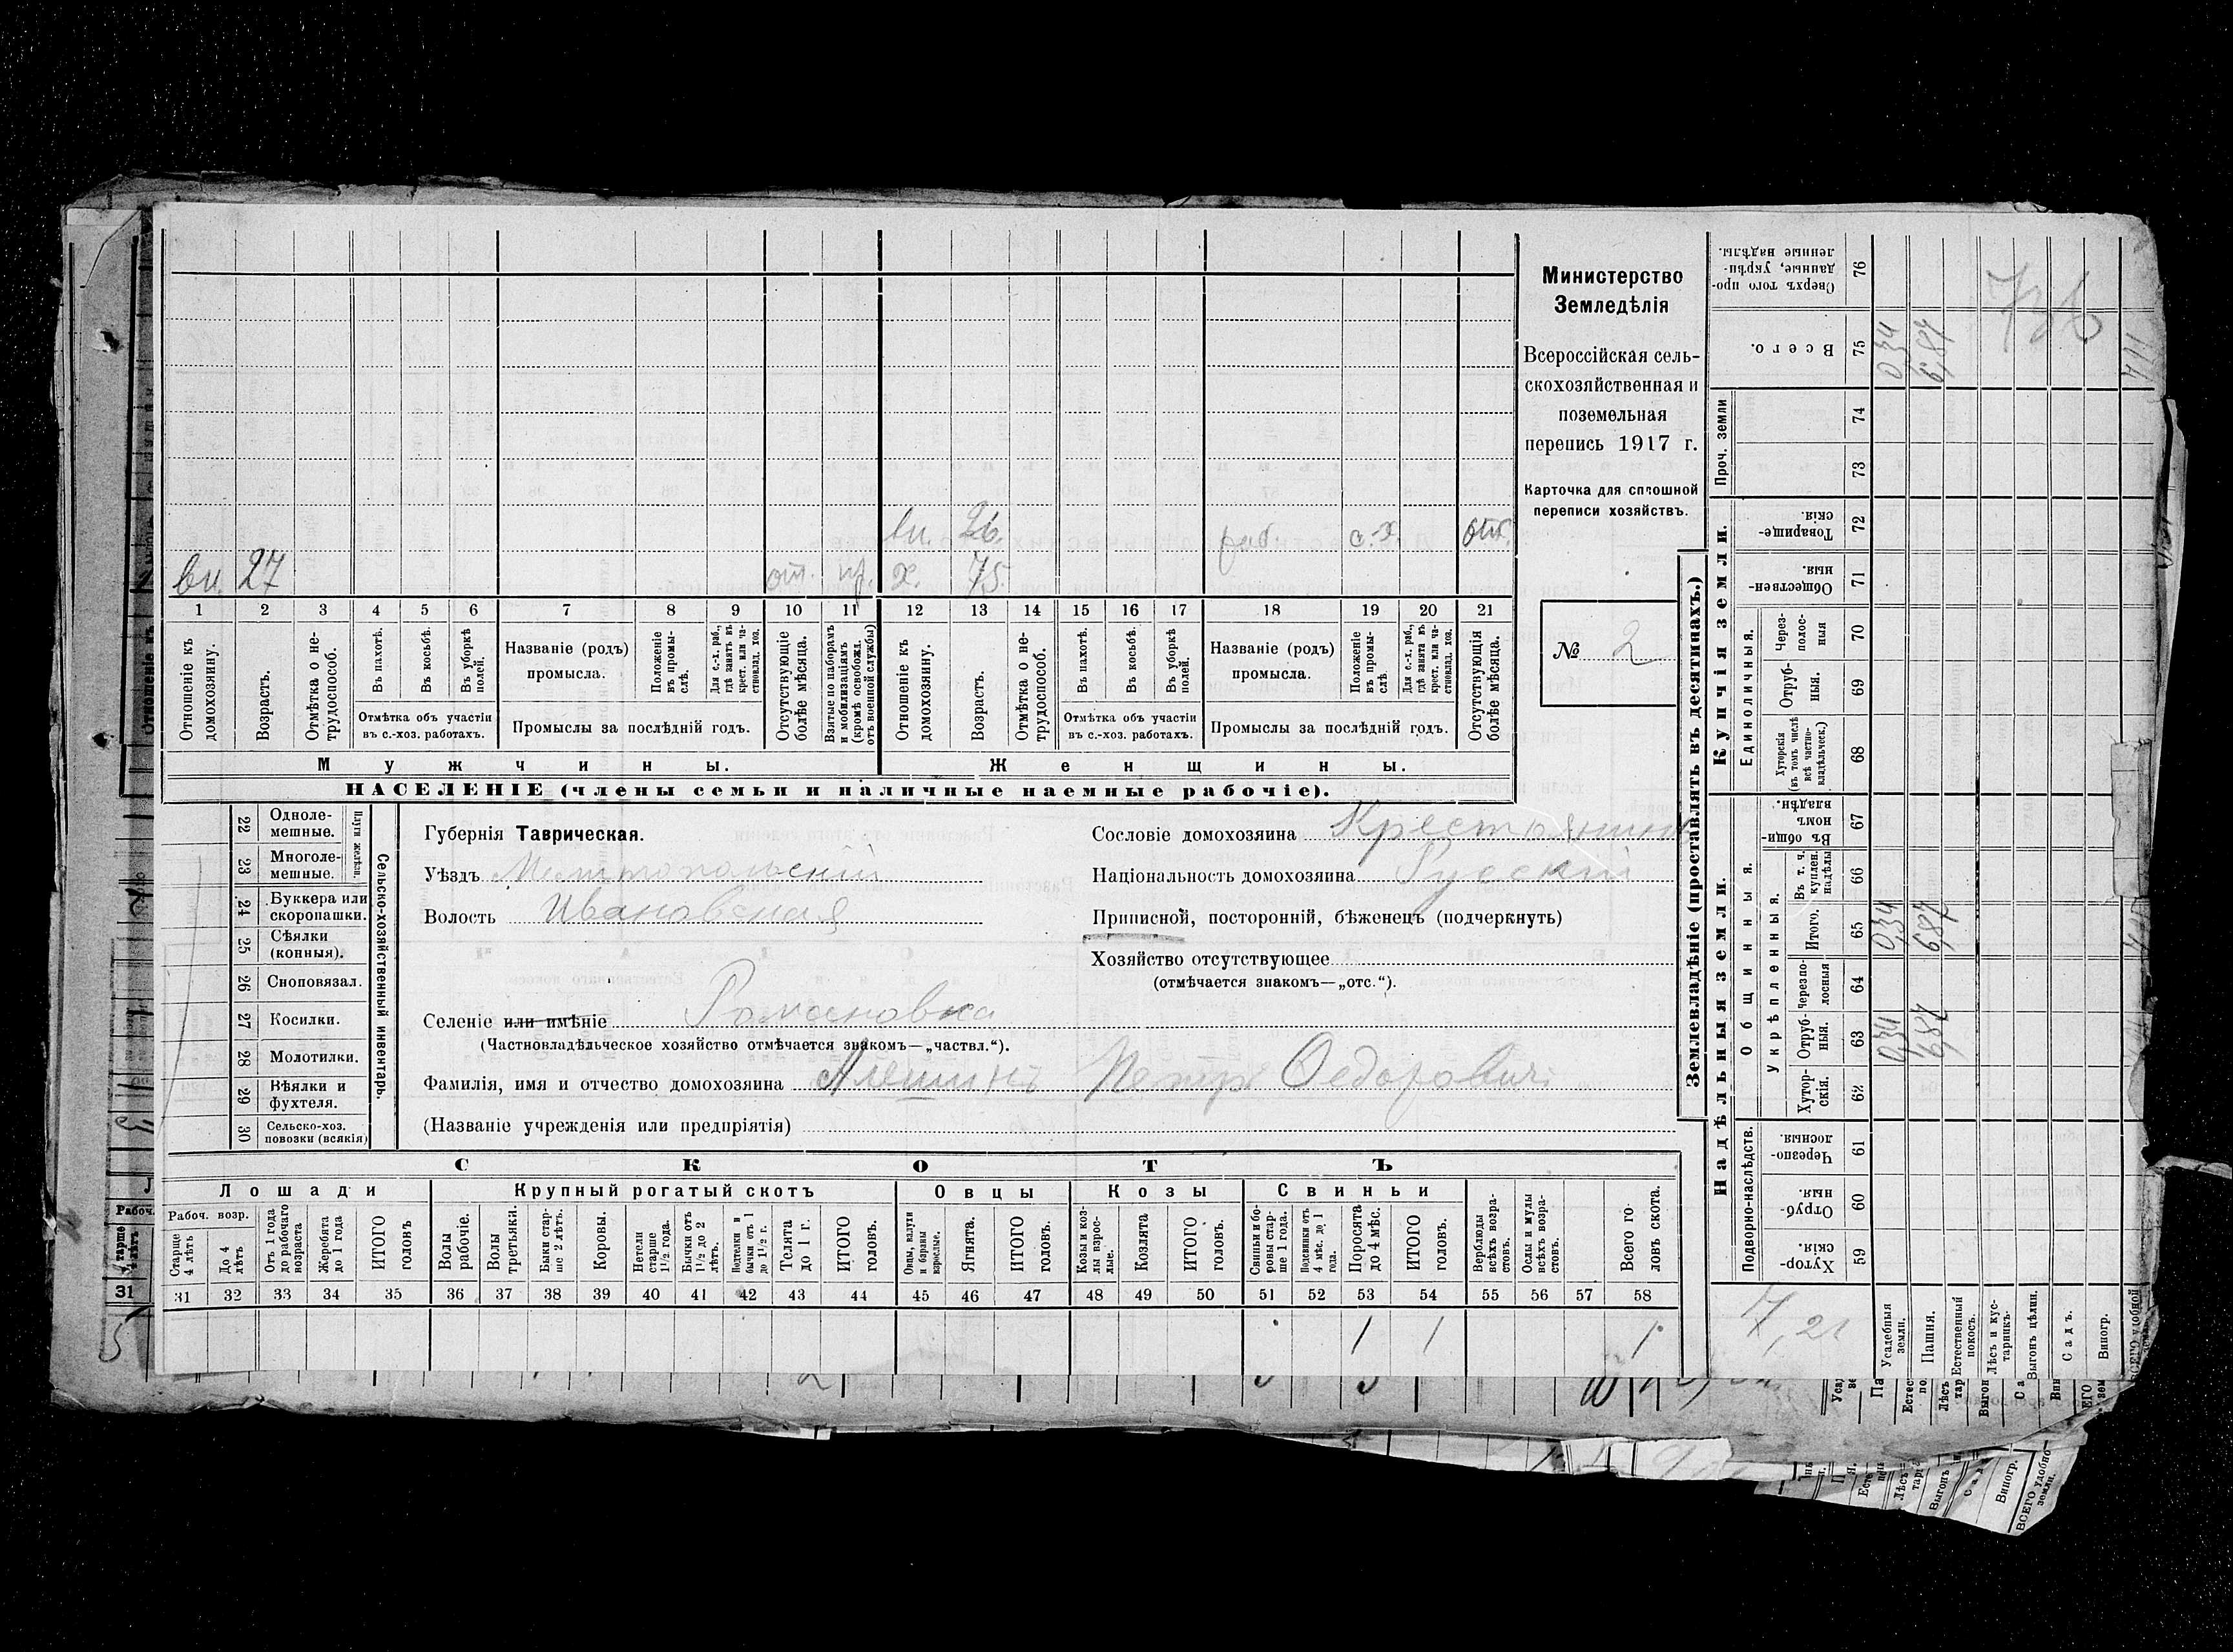 вн. 26. раб. с.х. отс.
вн. 27 от. пр. х. 75.
1 2 3 4 5 6 7 8 9 10 11 12 13 14 15 16 17 18 19 20 21
Отношеніе къ домохозяину.
Возрастъ.
Отмѣтка о не-трудоспособ.
Въ пахотѣ.
Въ косьбѣ.
Въ уборкѣ полей.
Отмѣтка объ участіи
въ с.-хоз. работахъ.
Названіе (родъ)
промысла.
Положеніе въ промы-слѣ.
Для с.-х. раб., гдѣ занятъ въ крест. или ча-стновлад. хоз.
Промыслы за послѣдній годъ.
Отсутствующіе болѣе мѣсяца.
Взятые по наборамъ и мобилизаціямъ (кромѣ освобожд. отъ военной службы)
Отношеніе къ домохозяину.
Возрастъ.
Отмѣтка о не-трудоспособ.
Въ пахотѣ.
Въ косьбѣ.
Въ уборкѣ полей.
Отмѣтка объ участіи
въ с.-хоз. работахъ.
Названіе (родъ)
промысла.
Положеніе въ промы-слѣ.
Для с.-х. раб., гдѣ занята въ крест. или ча-стновлад. хоз.
Промыслы за послѣдній годъ.
Отсутствующія болѣе мѣсяца.
Мужчины. Женщины.
НАСЕЛЕНІЕ (члены семьи и наличные наемные рабочіе).
Министерство
Земледѣлія
Всероссійская сель-
скохозяйственная и
поземельная
перепись 1917 г.
Карточка для сплошной
переписи хозяйствъ.
№ 2
22 Одноле-мешные.
23 Многоле-мешные.
Плуги желѣзн.
24 Буккера или скоропашки.
25 Сѣялки (конныя).
26 Сноповязал.
27 Косилки.
28 Молотилки.
29 Вѣялки и фухтеля.
30 Сельско-хоз. повозки (всякія)
Сельско-хозяйственный инвентарь.
Губернія Таврическая.
Уѣздъ Мелитопольскій
Волость Ивановская
Селеніе или имѣніе Романовка
(Частновладѣльческое хозяйство отмѣчается знакомъ—„частвл.“).
Фамилія, имя и отчество домохозяина Алешинъ Петръ Федоровичъ
(Названіе учрежденія или предпріятія)
Сословіе домохозяина Крестьянинъ
Національность домохозяина Русскій
Приписной, посторонній, бѣженецъ (подчеркнуть)
Хозяйство отсутствующее
(отмѣчается знакомъ—„отс.“).
СКОТЪ
Лошади Крупный рогатый скотъ Овцы Козы Свиньи
Рабоч. возр.
Старше 4 лѣтъ
До 4 лѣтъ
Отъ 1 года до рабочаго возраста
Жеребята до 1 года
ИТОГО головъ
Волы рабочіе.
Волы третьяки.
Быки стар-ше 2 лѣтъ.
Коровы.
Нетели старше 1½ года.
Бычки отъ 1½ до 2 лѣтъ.
Подтелки и бычки отъ 1 до 1½ г.
Телята до 1 г.
ИТОГО головъ.
Овцы, валухи и бараны взрослые.
Ягнята.
ИТОГО головъ.
Козы и коз-лы взрос-лые.
Козлята
ИТОГО головъ.
Свиньи и бо-ровы стар-ше 1 года.
Подсвинки отъ 4 мѣс. до 1 года.
Поросята до 4 мѣс.
ИТОГО головъ.
Верблюды всѣхъ возра-стовъ.
Ослы и мулы всѣхъ возра-стовъ.
Всего го-ловъ скота.
31 32 33 34 35 36 37 38 39 40 41 42 43 44 45 46 47 48 49 50 51 52 53 54 55 56 57 58
1 1 1
Землевладѣніе (проставлять въ десятинахъ.)
Надѣльныя земли. Купчія земли.
Подворно-наслѣдств.
Общинныя.
Укрѣпленныя.
Единоличныя.
Проч. земли
Хутор-скія. 59
Отруб-ныя. 60
Черезпо-лосныя. 61
Хутор-скія. 62
Отруб-ныя. 63 0,34 6,87
Черезпо-лосныя 64
Итого. 65 0,34 6,87
Въ т. ч. куплен. надѣлы 66
Въ общи-номъ владѣн. 67
Хуторскія (въ томъ числѣ всѣ частно-владѣльческ.) 68
Отруб-ныя. 69
Через-полос-ныя 70
Обществен-ныя. 71
Товарище-скія. 72
73
74
Всего. 75 0,34 6,87
Сверхъ того про-данные, укрѣп-ленные надѣлы. 76
7,21
Усадебныя земли.
Пашня.
Естественный покосъ.
Лѣсъ и кус-тарникъ.
Выгонъ цѣлин.
Садъ.
Виногр.